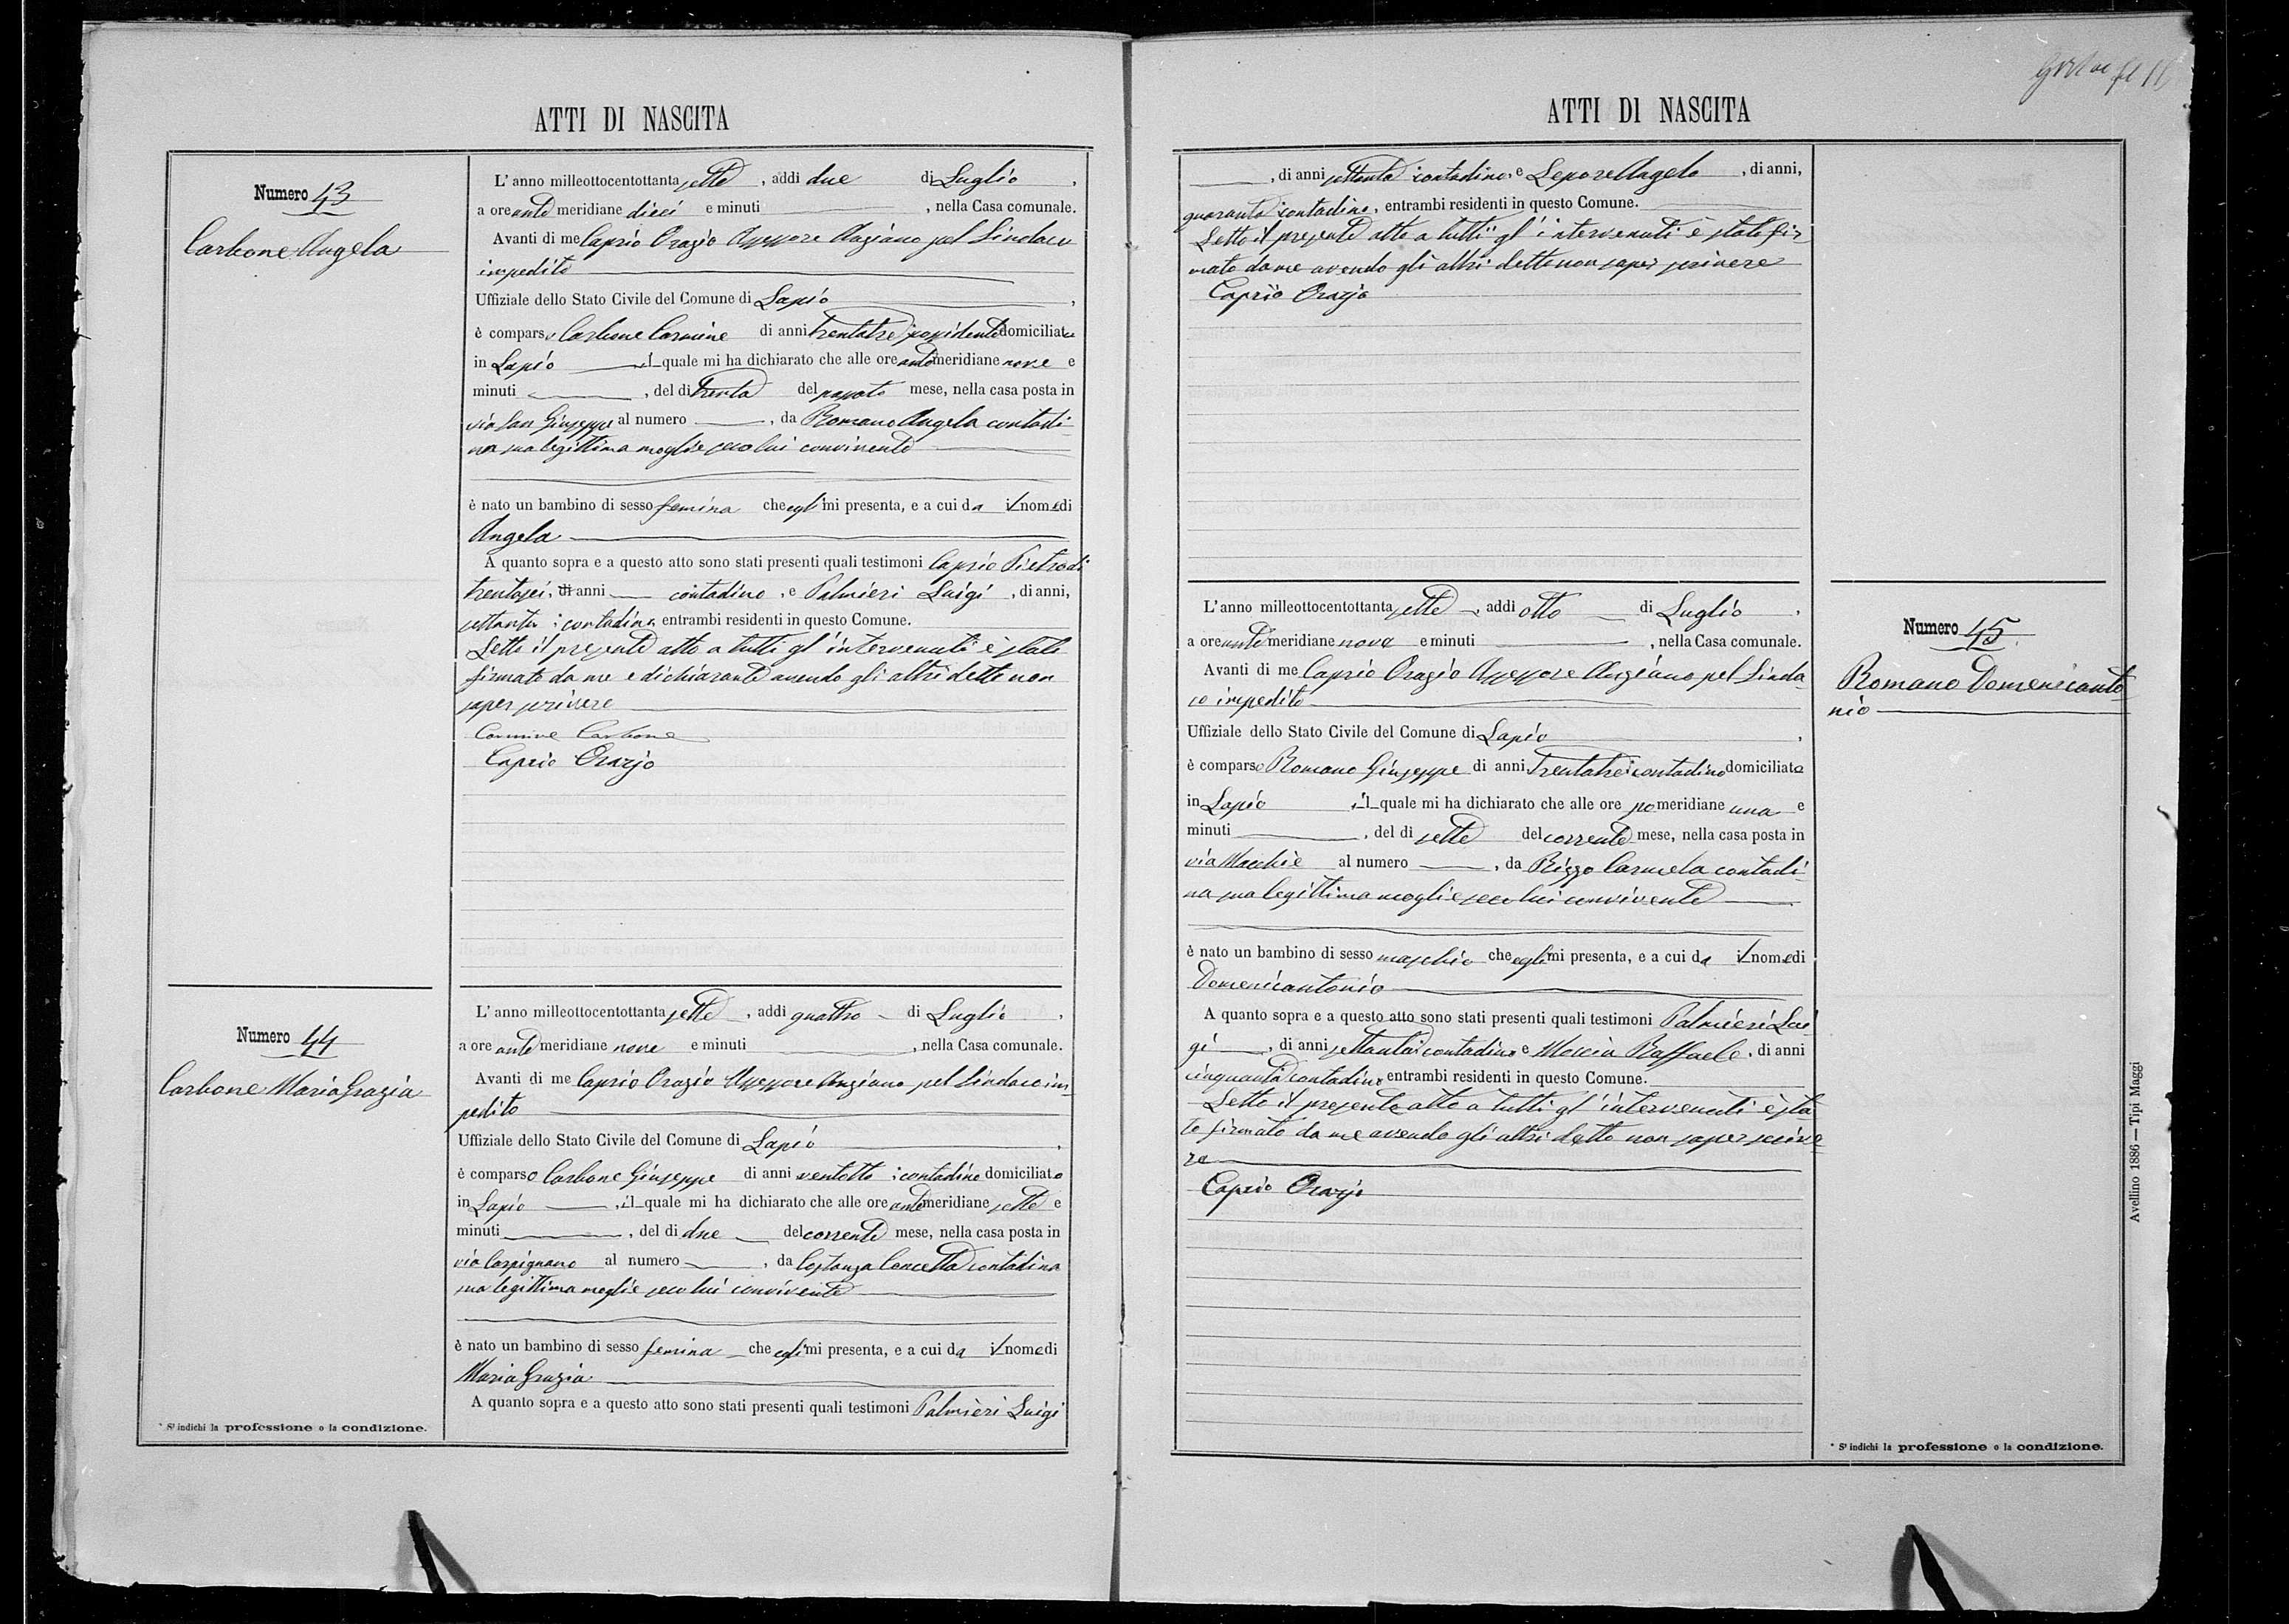 ATTI DI NASCITA
Numero 43
Carbone Angela
L'anno milleottocentottanta sette, addi due di Luglio,
a ore ante meridiane dieci e minuti , nella Casa comunale.
Avanti di me Caprio Orazio Assessore Anziano pel Sindaco
impedito
Uffiziale dello Stato Civile del Comune di Lapio,
è comparso Carbone Carmine di anni trentatre possidente domiciliato
in Lapio, il quale mi ha dichiarato che alle ore ante meridiane nove e
minuti , del dì trenta del passato mese, nella casa posta in
via San Giuseppe al numero , da Romano Angela contadi-
na sua legittima moglie seco lui convivente
è nato un bambino di sesso femina che egli mi presenta, e a cui da il nome di
Angela
A quanto sopra e a questo atto sono stati presenti quali testimoni Caprio Pietro di
trentasei, di anni contadino, e Palmieri Luigi, di anni,
settanta contadino, entrambi residenti in questo Comune.
Letto il presente atto a tutti gl'intervenuti è stato
firmato da me e dichiarante avendo gli altri detto non
saper scrivere
Carmine Carbone
Caprio Orazio
Numero 44
Carbone Maria Grazia
L'anno milleottocentottanta sette, addi quattro di Luglio,
a ore ante meridiane nove e minuti , nella Casa comunale.
Avanti di me Caprio Orazio Assessore Anziano pel Sindaco im-
pedito
Uffiziale dello Stato Civile del Comune di Lapio,
è comparso Carbone Giuseppe di anni ventotto contadino domiciliato
in Lapio, il quale mi ha dichiarato che alle ore ante meridiane sette e
minuti , del dì due del corrente mese, nella casa posta in
via Carpignano al numero , da Costanza Concetta contadina
sua legittima moglie seco lui convivente
è nato un bambino di sesso femina che egli mi presenta, e a cui da il nome di
Maria Grazia
A quanto sopra e a questo atto sono stati presenti quali testimoni Palmieri Luigi
* Si indichi la professione o la condizione.
ATTI DI NASCITA
, di anni settanta contadino, e Lepore Angelo, di anni,
quaranta contadino, entrambi residenti in questo Comune.
Letto il presente atto a tutti gl'intervenuti è stato fir
mato da me avendo gli altri detto non saper scrivere
Caprio Orazio
L'anno milleottocentottanta sette, addi otto di Luglio,
a ore ante meridiane nove e minuti , nella Casa comunale.
Avanti di me Caprio Orazio Assessore Anziano pel Sinda-
co impedito
Uffiziale dello Stato Civile del Comune di Lapio,
è comparso Romano Giuseppe di anni trentatre contadino domiciliato
in Lapio, il quale mi ha dichiarato che alle ore pomeridiane una e
minuti , del dì sette del corrente mese, nella casa posta in
via Macchie al numero , da Rizzo Carmela contadi-
na sua legittima moglie seco lui convivente
è nato un bambino di sesso maschio che egli mi presenta, e a cui da il nome di
Domenicantonio
A quanto sopra e a questo atto sono stati presenti quali testimoni Palmieri Lui-
gi, di anni settanta contadino e Moccia Raffaele, di anni
cinquanta contadino entrambi residenti in questo Comune.
Letto il presente atto a tutti gl'intervenuti è sta-
to firmato da me avendo gli altri detto non saper scrive-
re
Caprio Orazio
Numero 45
Romano Domenicanto
nio
* Si indichi la professione o la condizione.
Avellino 1886 — Tipi Maggi